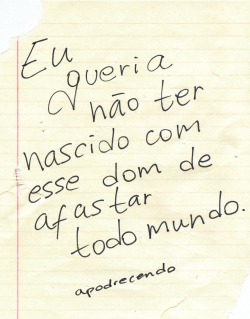 Eu
queria
não ter
nascido com
esse dom de
afastar
todo mundo.
apodrecendo